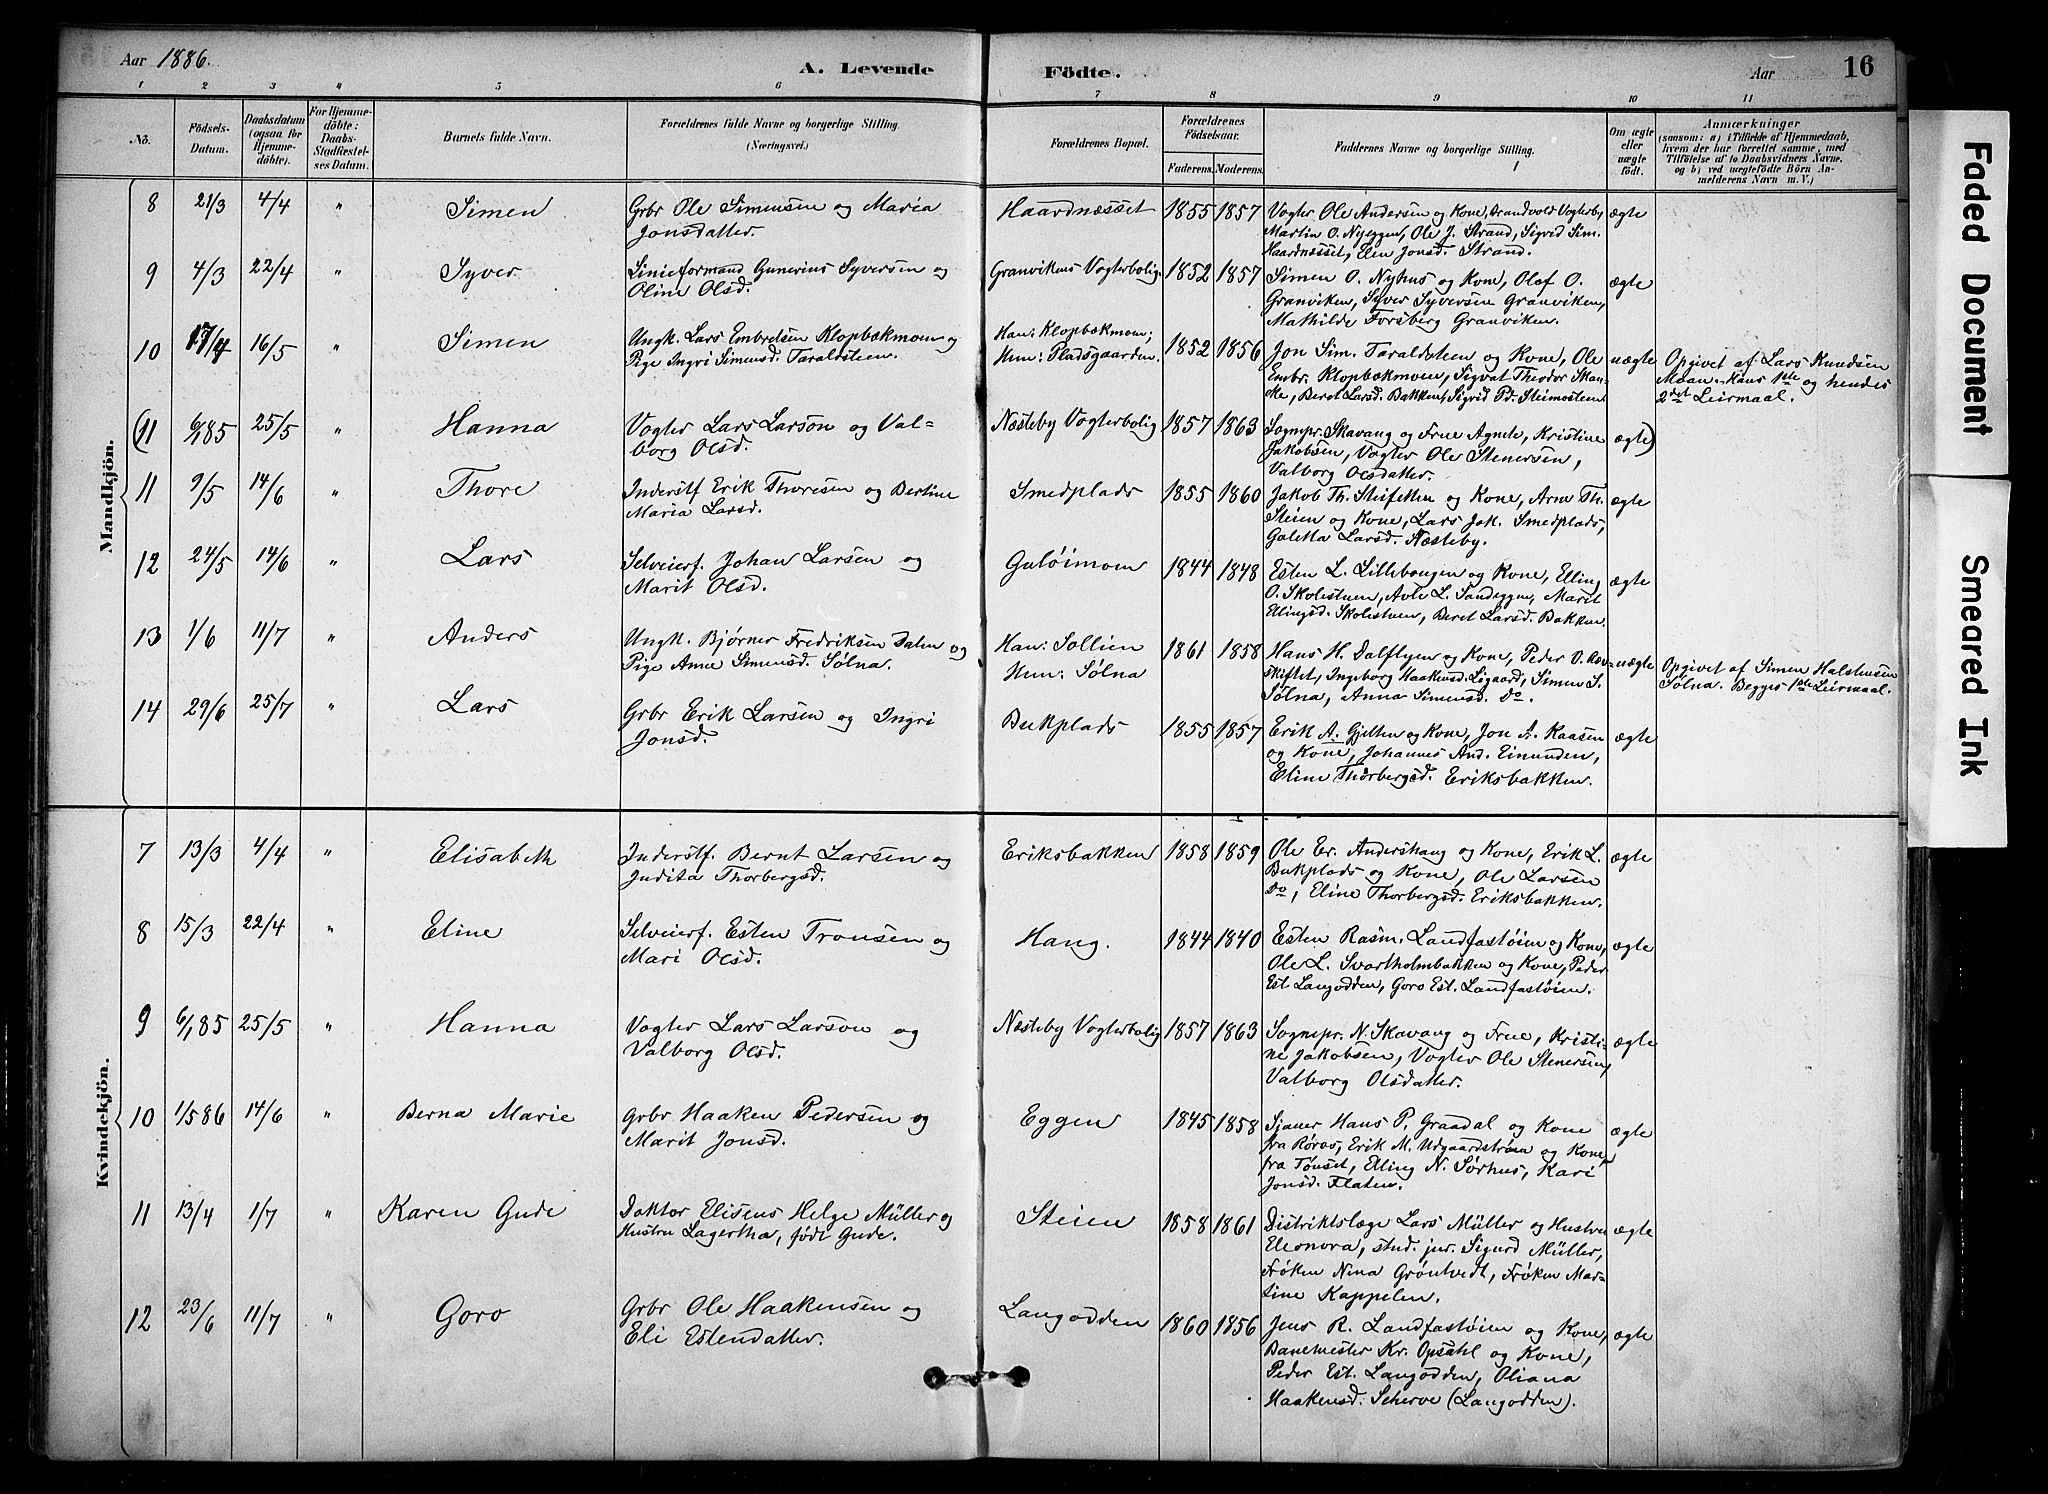 Aar 1886.
A. Levende Födte.
Aar
16
1 2 3 4 5 6 7 8 9 10 11
No.
Födsels-Datum.
Daabsdatum (ogsaa for Hjemme-döbte).
For Hjemme-döbte: Daabs-Stadfæstel-ses Datum.
Barnets fulde Navn.
Forældrenes fulde Navne og borgerlige Stilling.
(Næringsvei.)
Forældrenes Bopæl.
Forældrenes Födselsaar.
Faderens. Moderens.
Faddernes Navne og borgerlige Stilling.
Om ægte eller uægte födt.
Anmærkninger
(saasom: a) i Tilfælde af Hjemmedaab,
hvem der har forrettet samme, med
Tilföielse af to Daabsvidners Navne,
og b) ved uægtefödte Börn An-
melderens Navn m. V.)
Mandkjön.
8 21/3 4/4 " Simen Grbr Ole Simensen og Maria Haardnæsset 1855 1857 Vogter Ole Andersen og Kone, Strandvold Vogterb, ægte
Jonsdatter. Martin O. Nyeggen, Ole J. Strand, Sigrid Sim.
Haardnæsset, Elen Jonsd. Strand.
9 4/3 22/4 " Syver Linieformand Gunerius Syversen og Granvikens Vogterbolig 1852 1857 Simen O. Nyhus og Kone, Olaf O. ægte
Oline Olsd. Granviken, Syver Syversen Granviken,
Mathilde Forsberg Granviken.
10 17/4 16/5 " Simen Ungk. Lars Embretsen Klopbækmoen og Han: Klopbækmoen; 1852 1856 Jon Sim. Taraldsteen og Kone, Ole uægte Opgivet af Lars Knudsen
Pige Ingri Simensd. Taraldsteen. Hun: Pladsgaarden. Embr. Klopbækmoen, Sigvat Theodor Skan- Moan. Hans 1ste og hendes
ke, Beret Larsd. Bakken, Sigrid Pd. Steimosteen. 2det Leirmaal.
(11 6/1 85 25/5 " Hanna Vogter Lars Larson og Val- Næsteby Vogterbolig 1857 1863 Sognepr. Skavang og Frue Agnete, Kristine ægte)
borg Olsd. Jakobsen, Vogter Ole Stenersen,
Valborg Olsdatter.
11 9/5 14/6 " Thore Inderstf Erik Thoresen og Bertine Smedplads 1855 1860 Jakob Th. Steifetten og Kone, Arne Th. ægte
Maria Larsd. Steien og Kone, Lars Jak. Smedplads,
Galetta Larsd. Næsteby.
12 24/5 14/6 " Lars Selveierf. Johan Larsen og Guløimoen 1844 1848 Esten L. Lillebangen og Kone, Elling ægte
Marit Olsd. O. Skolestuen, Avle L. Sandeggen, Marit
Elingsd. Skolestuen, Beret Larsd. Bakken.
13 1/6 11/7 " Anders Ungk. Bjørner Fredriksen Dalen og Han: Sollien 1861 1858 Hans H. Dalflyen og Kone, Peder O. Aa- uægte Opgivet af Simen Halstensen
Pige Anne Simensd. Sølna. Hun: Sølna skiftet, Ingeborg Haakensd. Ligaard, Simen S. Sølna. Begges 1ste Leirmaal.
Sølna, Anna Simensd. Do.
14 29/6 25/7 " Lars Grbr Erik Larsen og Ingri Bukplads 1855 1857 Erik A. Gjelten og Kone, Jon A. Kaasen ægte
Jonsd. og Kone, Johannes And. Einunden,
Eline Thorbergsd. Eriksbakken.
Kvindekjön.
7 13/3 4/4 " Elisabeth Inderstf. Bernt Larsen og Eriksbakken 1858 1859 Ole Er. Andershaug og Kone, Erik L. ægte
Judita Thorbergsd. Bukplads og Kone, Ole Larsen
Do, Eline Thorbergsd. Eriksbakken.
8 15/3 22/4 " Eline Selveierf. Esten Tronsen og Haug. 1844 1840 Esten Rasm. Landfastøien og Kone, ægte
Mari Olsd. Ole L. Svartholmbakken og Kone, Peder
Est Langodden, Goro Est. Landfastøien.
9 6/1 85 25/5 " Hanna Vogter Lars Larson og Næsteby Vogterbolig 1857 1863 Sognepr. N. Skavang og Frue, Kristi- ægte
Valborg Olsd. ne Jakobsen, Vogter Ole Stenersen,
Valborg Olsdatter.
10 1/5 86 14/6 " Berna Marie Grbr Haaken Pedersen og Eggen 1845 1858 Sjauer Hans P. Graadal og Kone ægte
Marit Jonsd. fra Røros, Erik M. Udgaardstrøen og Kone
fra Tønset, Elling N. Sørhus, Kari
Jonsd. Flaten.
11 13/4 1/7 " Karen Gude Doktor Elisens Helge Müller og Steien 1858 1861 Distriktslæge Lars Müller og Hustru ægte
Hustru Lagertha, født Gude. Eleonora, stud. jur. Sigurd Müller,
Frøken Nina Grøntvedt, Frøken Mar-
tine Kappelen.
12 23/6 11/7 " Goro Grbr Ole Haakensen og Langodden 1860 1856 Jens R. Landfastøien og Kone, ægte
Eli Estendatter. Banemester Kr. Opsahl og Kone,
Peder Est. Langodden, Oliana
Haakensd. Scherve (Langodden).
Faded Document
Smeared Ink